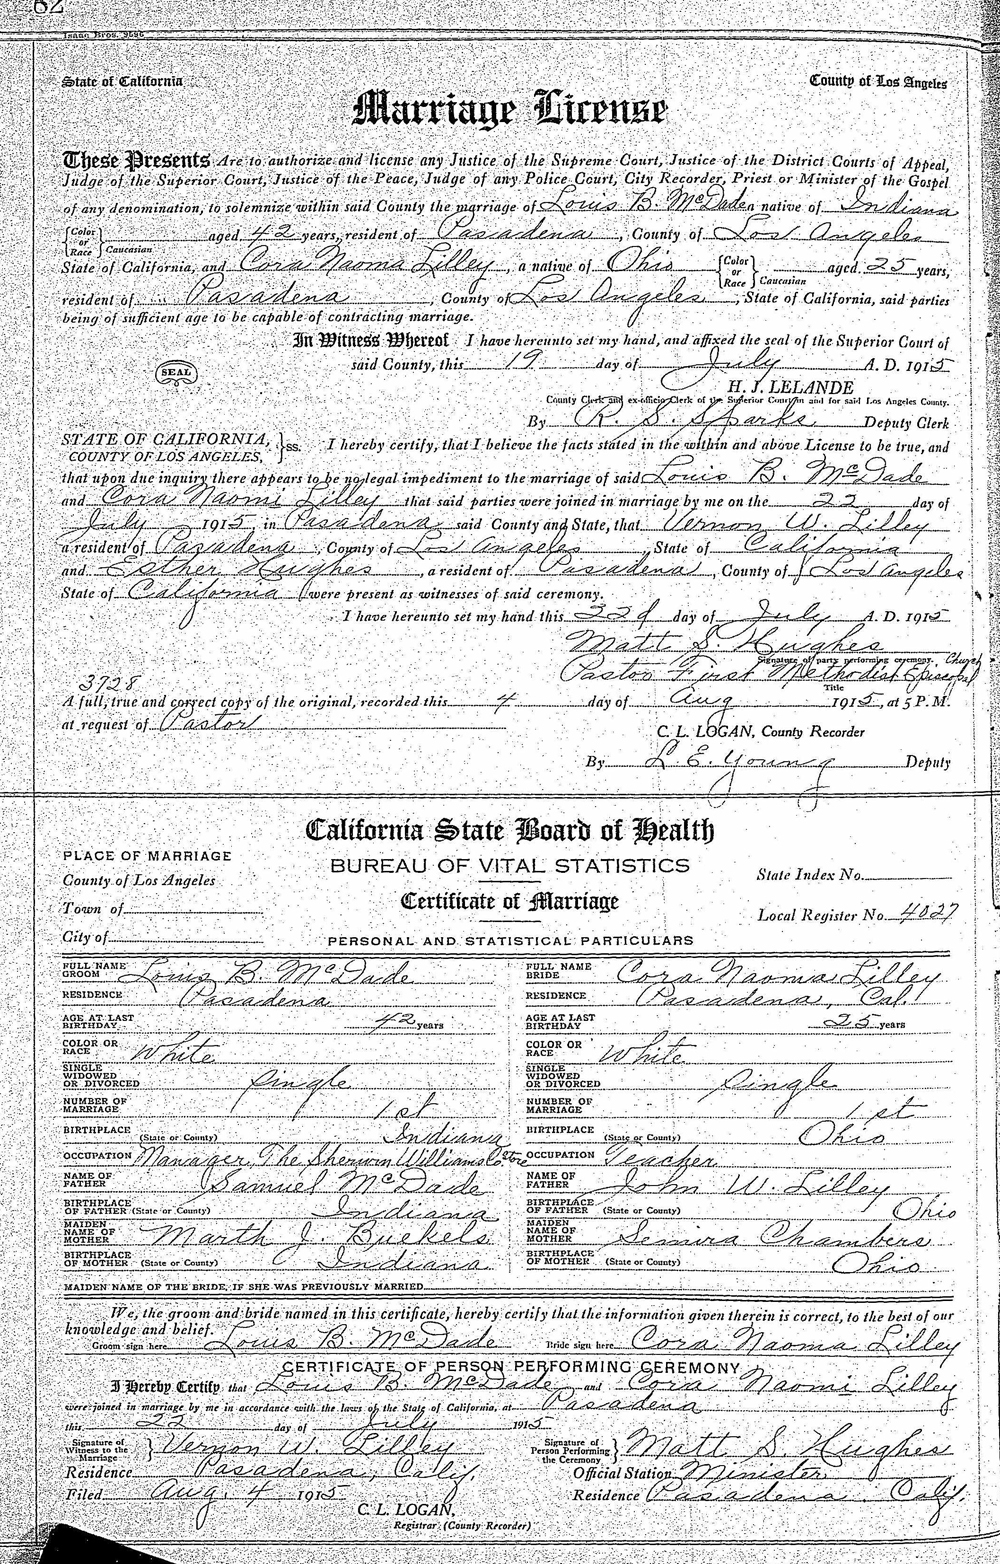 62
Isaac Bros. 9696
State of California County of Los Angeles
Marriage License
These Presents Are to authorize and license any Justice of the Supreme Court, Justice of the District Courts of Appeal,
Judge of the Superior Court, Justice of the Peace, Judge of any Police Court, City Recorder, Priest or Minister of the Gospel
of any denomination, to solemnize within said County the marriage of Louis B. McDade a native of Indiana
{Color or Race} Caucasian aged 42 years, resident of Pasadena, County of Los Angeles
State of California, and Cora Naoma Lilley, a native of Ohio {Color or Race} Caucasian aged 25 years,
resident of Pasadena, County of Los Angeles, State of California, said parties
being of sufficient age to be capable of contracting marriage.
In Witness Whereof I have hereunto set my hand, and affixed the seal of the Superior Court of
SEAL said County, this 19 day of July A. D. 1915
H. J. LELANDE
County Clerk and ex-officio Clerk of the Superior Court in and for said Los Angeles County.
By R. S. Sparks Deputy Clerk
STATE OF CALIFORNIA, COUNTY OF LOS ANGELES, }ss. I hereby certify, that I believe the facts stated in the within and above License to be true, and
that upon due inquiry there appears to be no legal impediment to the marriage of said Louis B. McDade
and Cora Naomi Lilley that said parties were joined in marriage by me on the 22 day of
July 1915 in Pasadena said County and State, that Vernon W. Lilley
a resident of Pasadena, County of Los Angeles, State of California
and Esther Hughes, a resident of Pasadena, County of Los Angeles
State of California were present as witnesses of said ceremony.
I have hereunto set my hand this 22d day of July A. D. 1915
Matt S. Hughes
Signature of party performing ceremony.
Pastor First Methodist Episcopal Church
Title
3728
A full, true and correct copy of the original, recorded this 4 day of Aug 1915, at 5 P. M.
at request of Pastor
C. L. LOGAN, County Recorder
By L. E. Young Deputy
California State Board of Health
BUREAU OF VITAL STATISTICS
Certificate of Marriage
PLACE OF MARRIAGE
County of Los Angeles State Index No.
Town of Local Register No. 4027
City of
PERSONAL AND STATISTICAL PARTICULARS
FULL NAME GROOM Louis B. McDade FULL NAME BRIDE Cora Naoma Lilley
RESIDENCE Pasadena RESIDENCE Pasadena, Cal.
AGE AT LAST BIRTHDAY 42 years AGE AT LAST BIRTHDAY 25 years
COLOR OR RACE White COLOR OR RACE White
SINGLE WIDOWED OR DIVORCED Single SINGLE WIDOWED OR DIVORCED Single
NUMBER OF MARRIAGE 1st NUMBER OF MARRIAGE 1st
BIRTHPLACE (State or County) Indiana BIRTHPLACE (State or County) Ohio
OCCUPATION Manager, The Sherwin Williams Co Store OCCUPATION Teacher
NAME OF FATHER Samuel McDade NAME OF FATHER John W. Lilley
BIRTHPLACE OF FATHER (State or County) Indiana BIRTHPLACE OF FATHER (State or County) Ohio
MAIDEN NAME OF MOTHER Marth J. Buekels MAIDEN NAME OF MOTHER Semira Chambers
BIRTHPLACE OF MOTHER (State or County) Indiana BIRTHPLACE OF MOTHER (State or County) Ohio
MAIDEN NAME OF THE BRIDE, IF SHE WAS PREVIOUSLY MARRIED
We, the groom and bride named in this certificate, hereby certify that the information given therein is correct, to the best of our
knowledge and belief.
Groom sign here Louis B. McDade Bride sign here Cora Naoma Lilley
CERTIFICATE OF PERSON PERFORMING CEREMONY
I Hereby Certify that Louis B. McDade and Cora Naomi Lilley
were joined in marriage by me in accordance with the laws of the State of California, at Pasadena
this 22 day of July 1915
Signature of Witness to the Marriage } Vernon W. Lilley Signature of Person Performing the Ceremony } Matt S. Hughes
Residence Pasadena, Calif. Official Station Minister
Filed Aug. 4 1915 Residence Pasadena. Calif.
C. L. LOGAN,
Registrar (County Recorder)